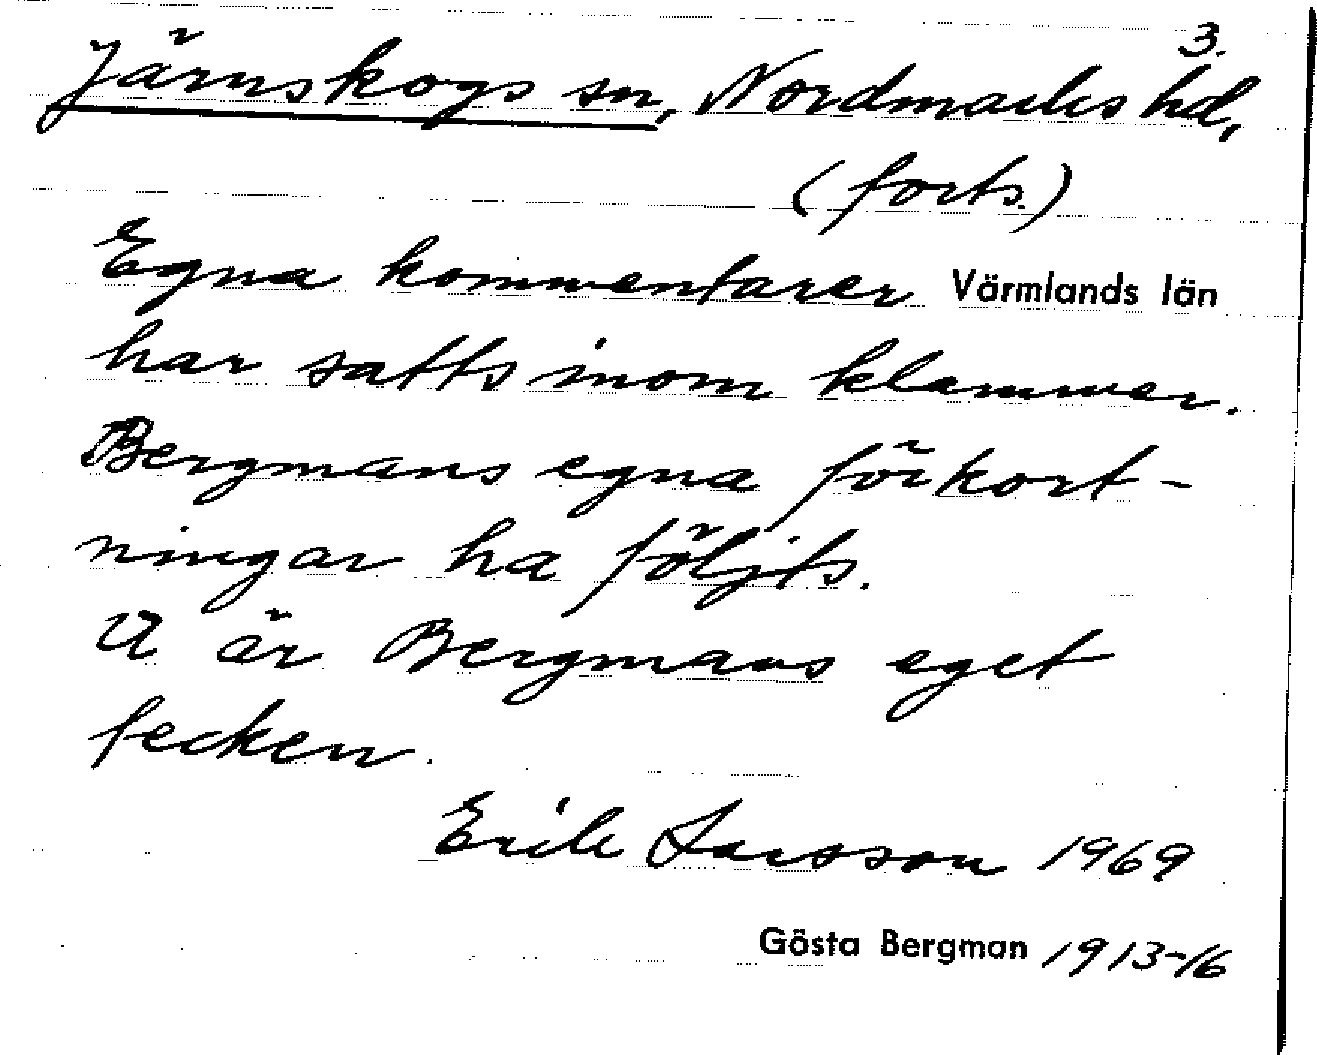 3.
Järnskogs sn, Nordmarks hd,
(forts.)
Egna kommentarer Värmlands län
har satts inom klammer.
Bergmans egna förkort-
ningar ha följts.
är Bergmans eget
tecken.
Erik Larsson 1969
Gösta Bergman 1913-16